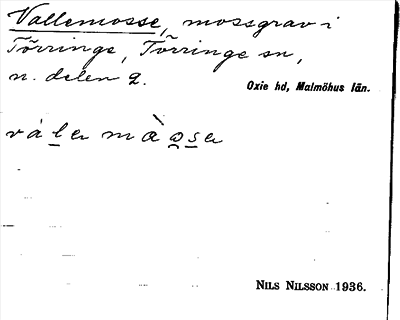 Vallemosse, mossgrav i
Törringe, Törringe sn,
n. delen 2.
Oxie hd, Malmöhus län.
NILS NILSSON 1936.